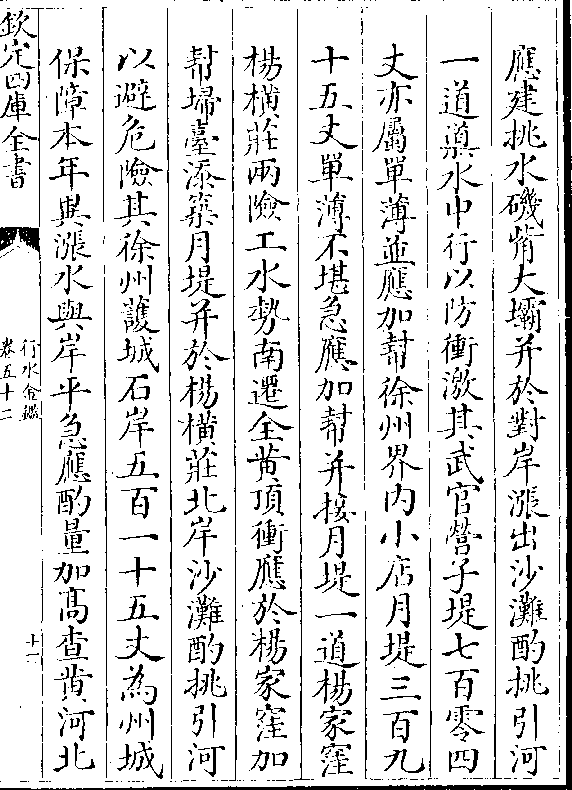 應建挑水磯觜大壩并於對岸漲出沙灘酌挑引河
一道導水中行以防衝激其武官營子堤七百零四
丈亦屬單薄並應加幫徐州界内小店月堤三百九
十五丈單薄不堪急應加幫并接月堤一道楊家窪
楊横莊兩險工水勢南遷全黄頂衝應於楊家窪加
幫埽臺添築月堤并於楊横莊北岸沙灘酌挑引河
以避危險其徐州護城石岸五百一十五丈為州城
保障本年異漲水與岸平急應酌量加髙查黄河北
欽定四庫全書
行水金鑑
卷五十二
十一